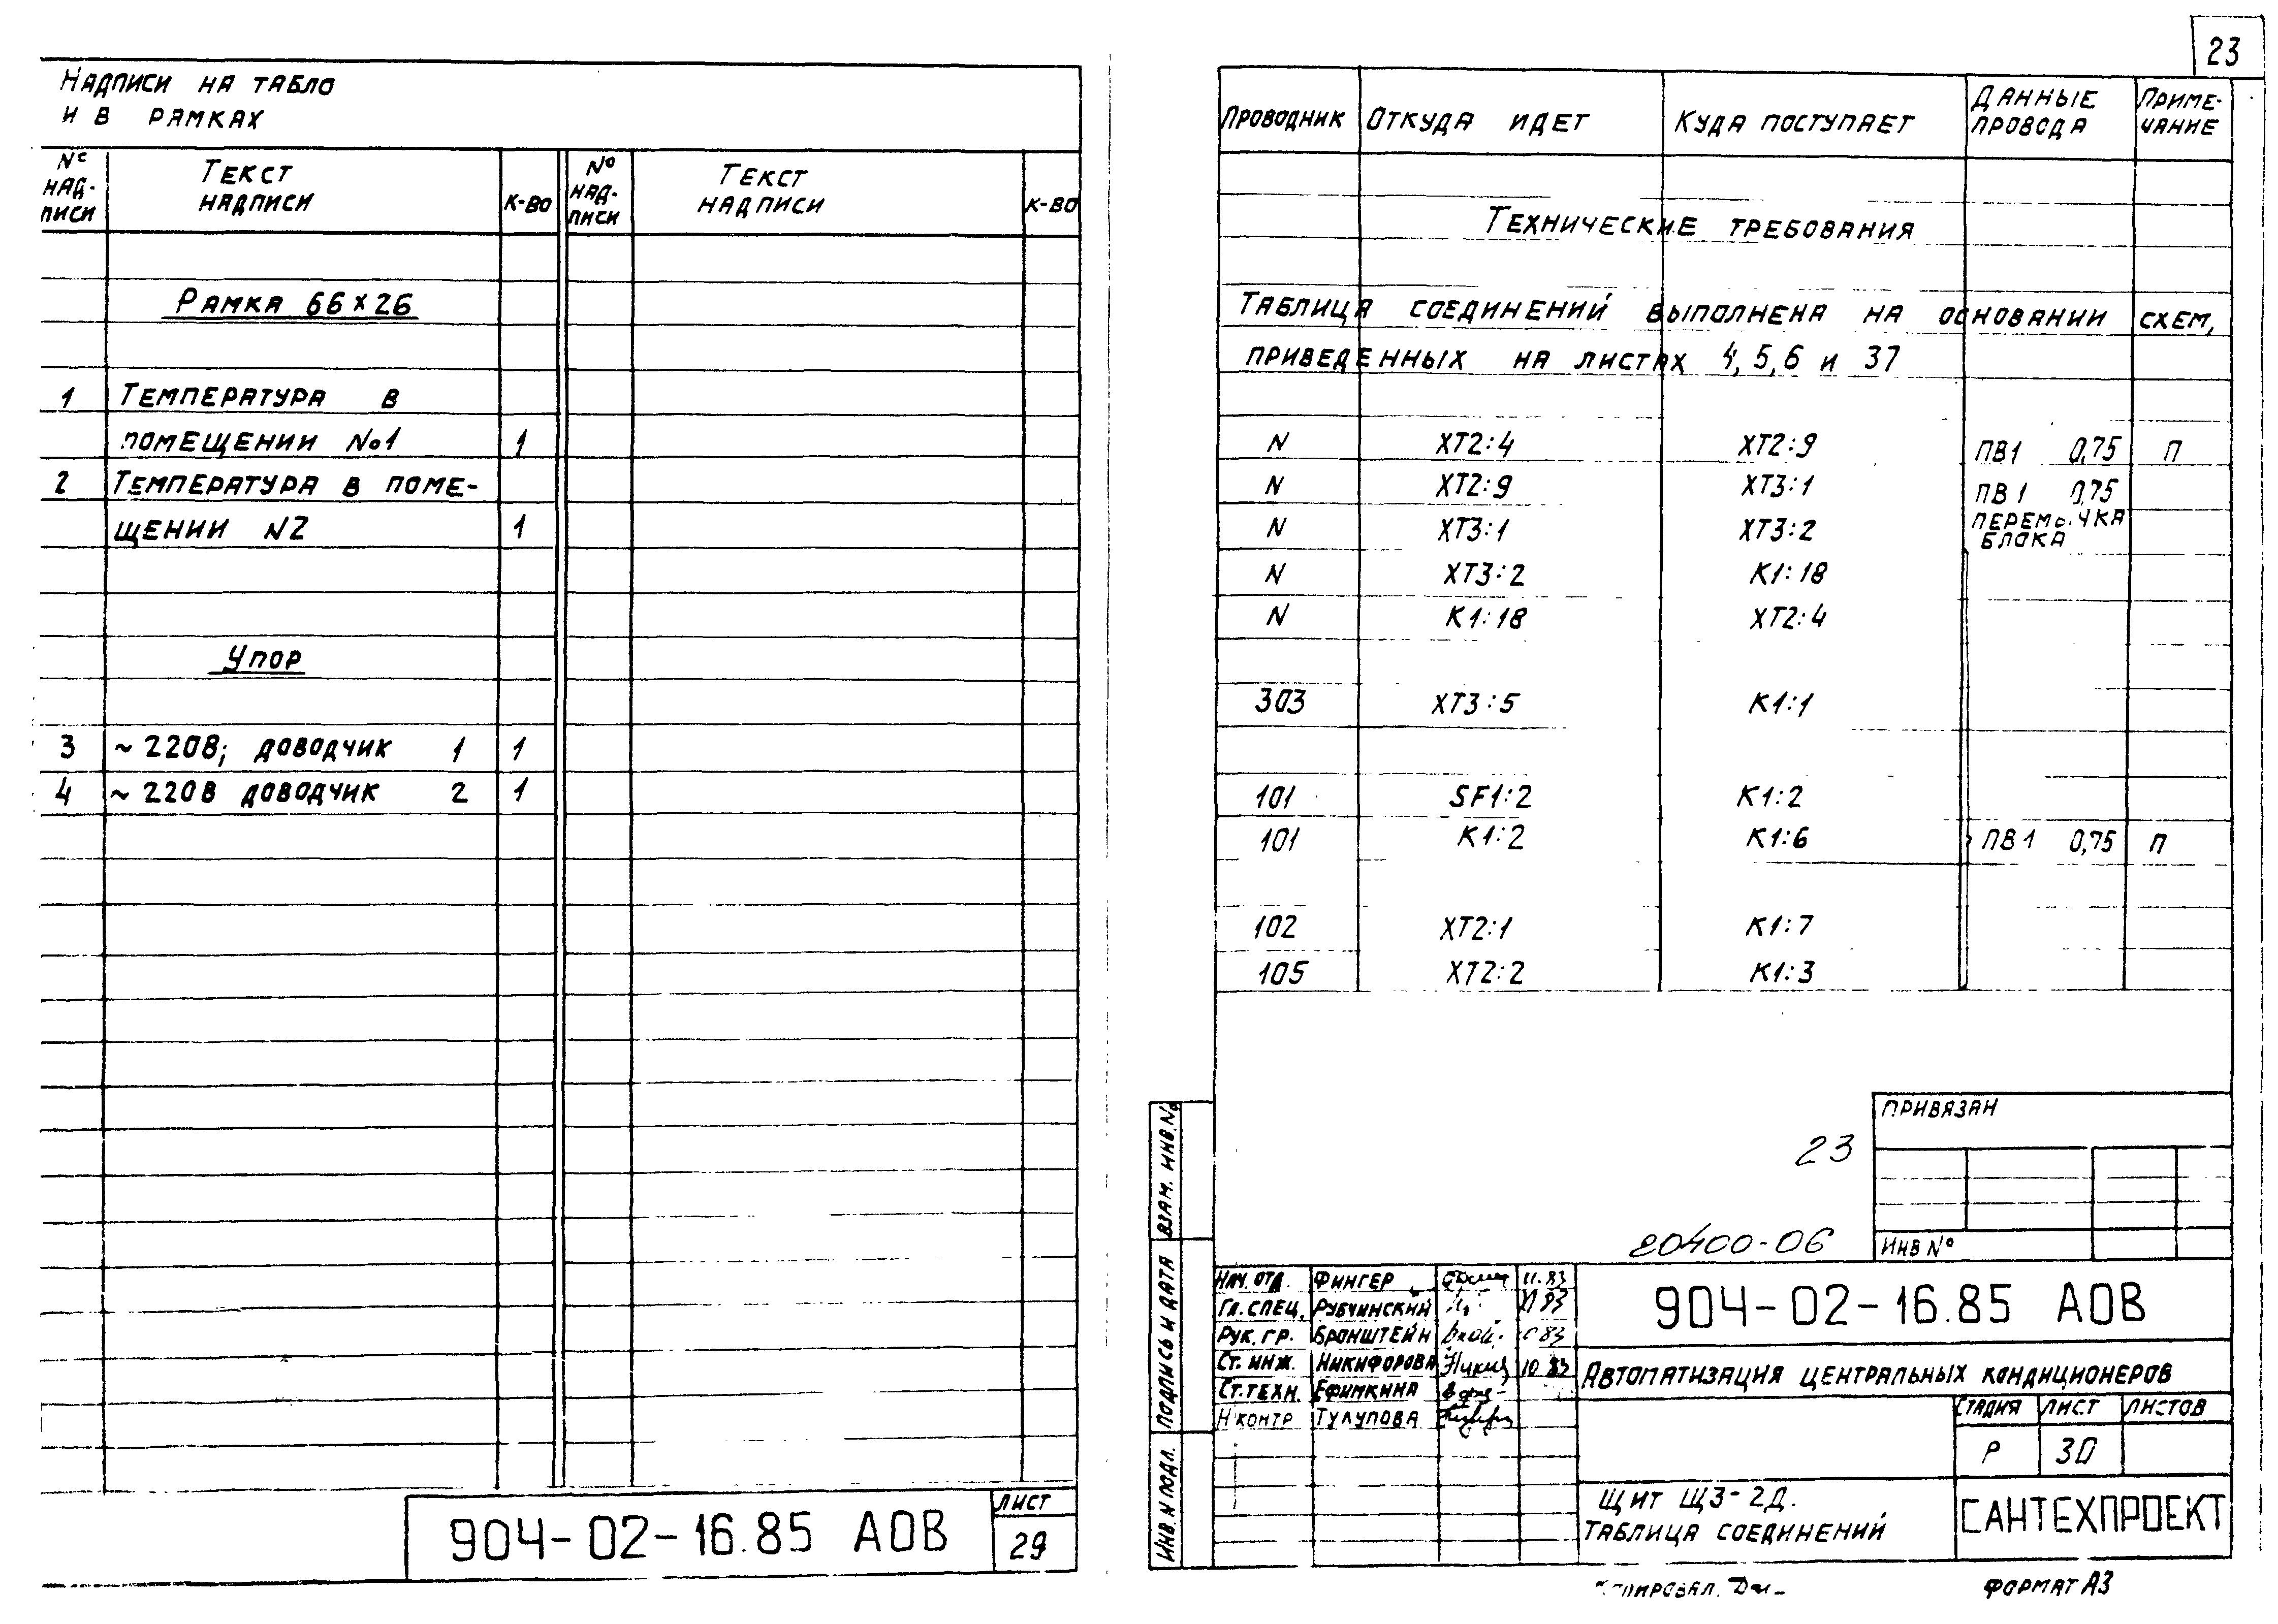 НАДПИСИ НА ТАБЛО
И В РАМКАХ
№ НАД-ПИСИ ТЕКСТ НАДПИСИ К-ВО № НАД-ПИСИ ТЕКСТ НАДПИСИ К-ВО
РАМКА 66×26
1 ТЕМПЕРАТУРА В
ПОМЕЩЕНИИ №1 1
2 ТЕМПЕРАТУРА В ПОМЕ-
ЩЕНИИ N2 1
УПОР
3 ~220В; ДОВОДЧИК 1 1
4 ~220В ДОВОДЧИК 2 1
904-02-16.85 АОВ
ЛИСТ
29
23
ПРОВОДНИК ОТКУДА ИДЕТ КУДА ПОСТУПАЕТ ДАННЫЕ ПРОВОДА ПРИМЕ-ЧАНИЕ
ТЕХНИЧЕСКИЕ ТРЕБОВАНИЯ
ТАБЛИЦА СОЕДИНЕНИЙ ВЫПОЛНЕНА НА ОСНОВАНИИ СХЕМ,
ПРИВЕДЕННЫХ НА ЛИСТАХ 4, 5, 6 и 37
N ХТ2:4 ХТ2:9 ПВ1 0,75 П
N ХТ2:9 ХТ3:1 ПВ1 0,75
N ХТ3:1 ХТ3:2 ПЕРЕМЫЧКА БЛОКА
N ХТ3:2 К1:18
N К1:18 ХТ2:4
303 ХТ3:5 К1:1
101 SF1:2 К1:2
101 К1:2 К1:6 ПВ1 0,75 П
102 ХТ2:1 К1:7
105 ХТ2:2 К1:3
ПРИВЯЗАН
23
20400-06
ИНВ №
ВЗАМ. ИНВ. №
ПОДПИСЬ И ДАТА
ИНВ. N ПОДЛ.
НАЧ. ОТД. ФИНГЕР 11.83
ГЛ. СПЕЦ. РУБЧИНСКИЙ
РУК. ГР. БРОНШТЕЙН
СТ. ИНЖ. НИКИФОРОВА 10.83
СТ. ТЕХН. ЕФИМКИНА
Н КОНТР ТУЛУПОВА
904-02-16.85 АОВ
АВТОМАТИЗАЦИЯ ЦЕНТРАЛЬНЫХ КОНДИЦИОНЕРОВ
СТАДИЯ ЛИСТ ЛИСТОВ
Р 30
ЩИТ ЩЗ-2Д.
ТАБЛИЦА СОЕДИНЕНИЙ
САНТЕХПРОЕКТ
КОПИРОВАЛ.
ФОРМАТ А3